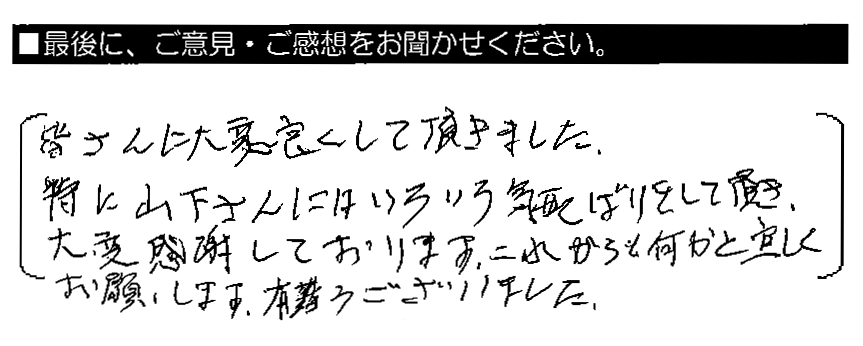 ■最後に、ご意見・ご感想をお聞かせください。
皆さんに大変良くして頂きました。
特に山下さんにはいろいろ気配ばりをして頂き、
大変感謝しております。これからも何かと宜しく
お願いします。有難うございました。